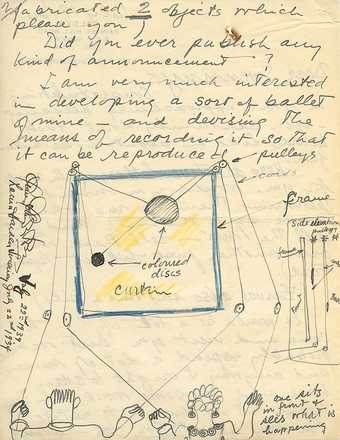 fabricated 2 objects which
please you)
Did you ever publish any
kind of announcement - ?
I am very much interested
in developing a sort of ballet
of mine - and devising the
means of recording it so that
it can be reproduced
pulleys
cords
frame
side elevation
pulleys
frame
coloured
discs
curtain
July 22nd 1934
July 22nd 1934
one sits
in front &
sees what is
happening